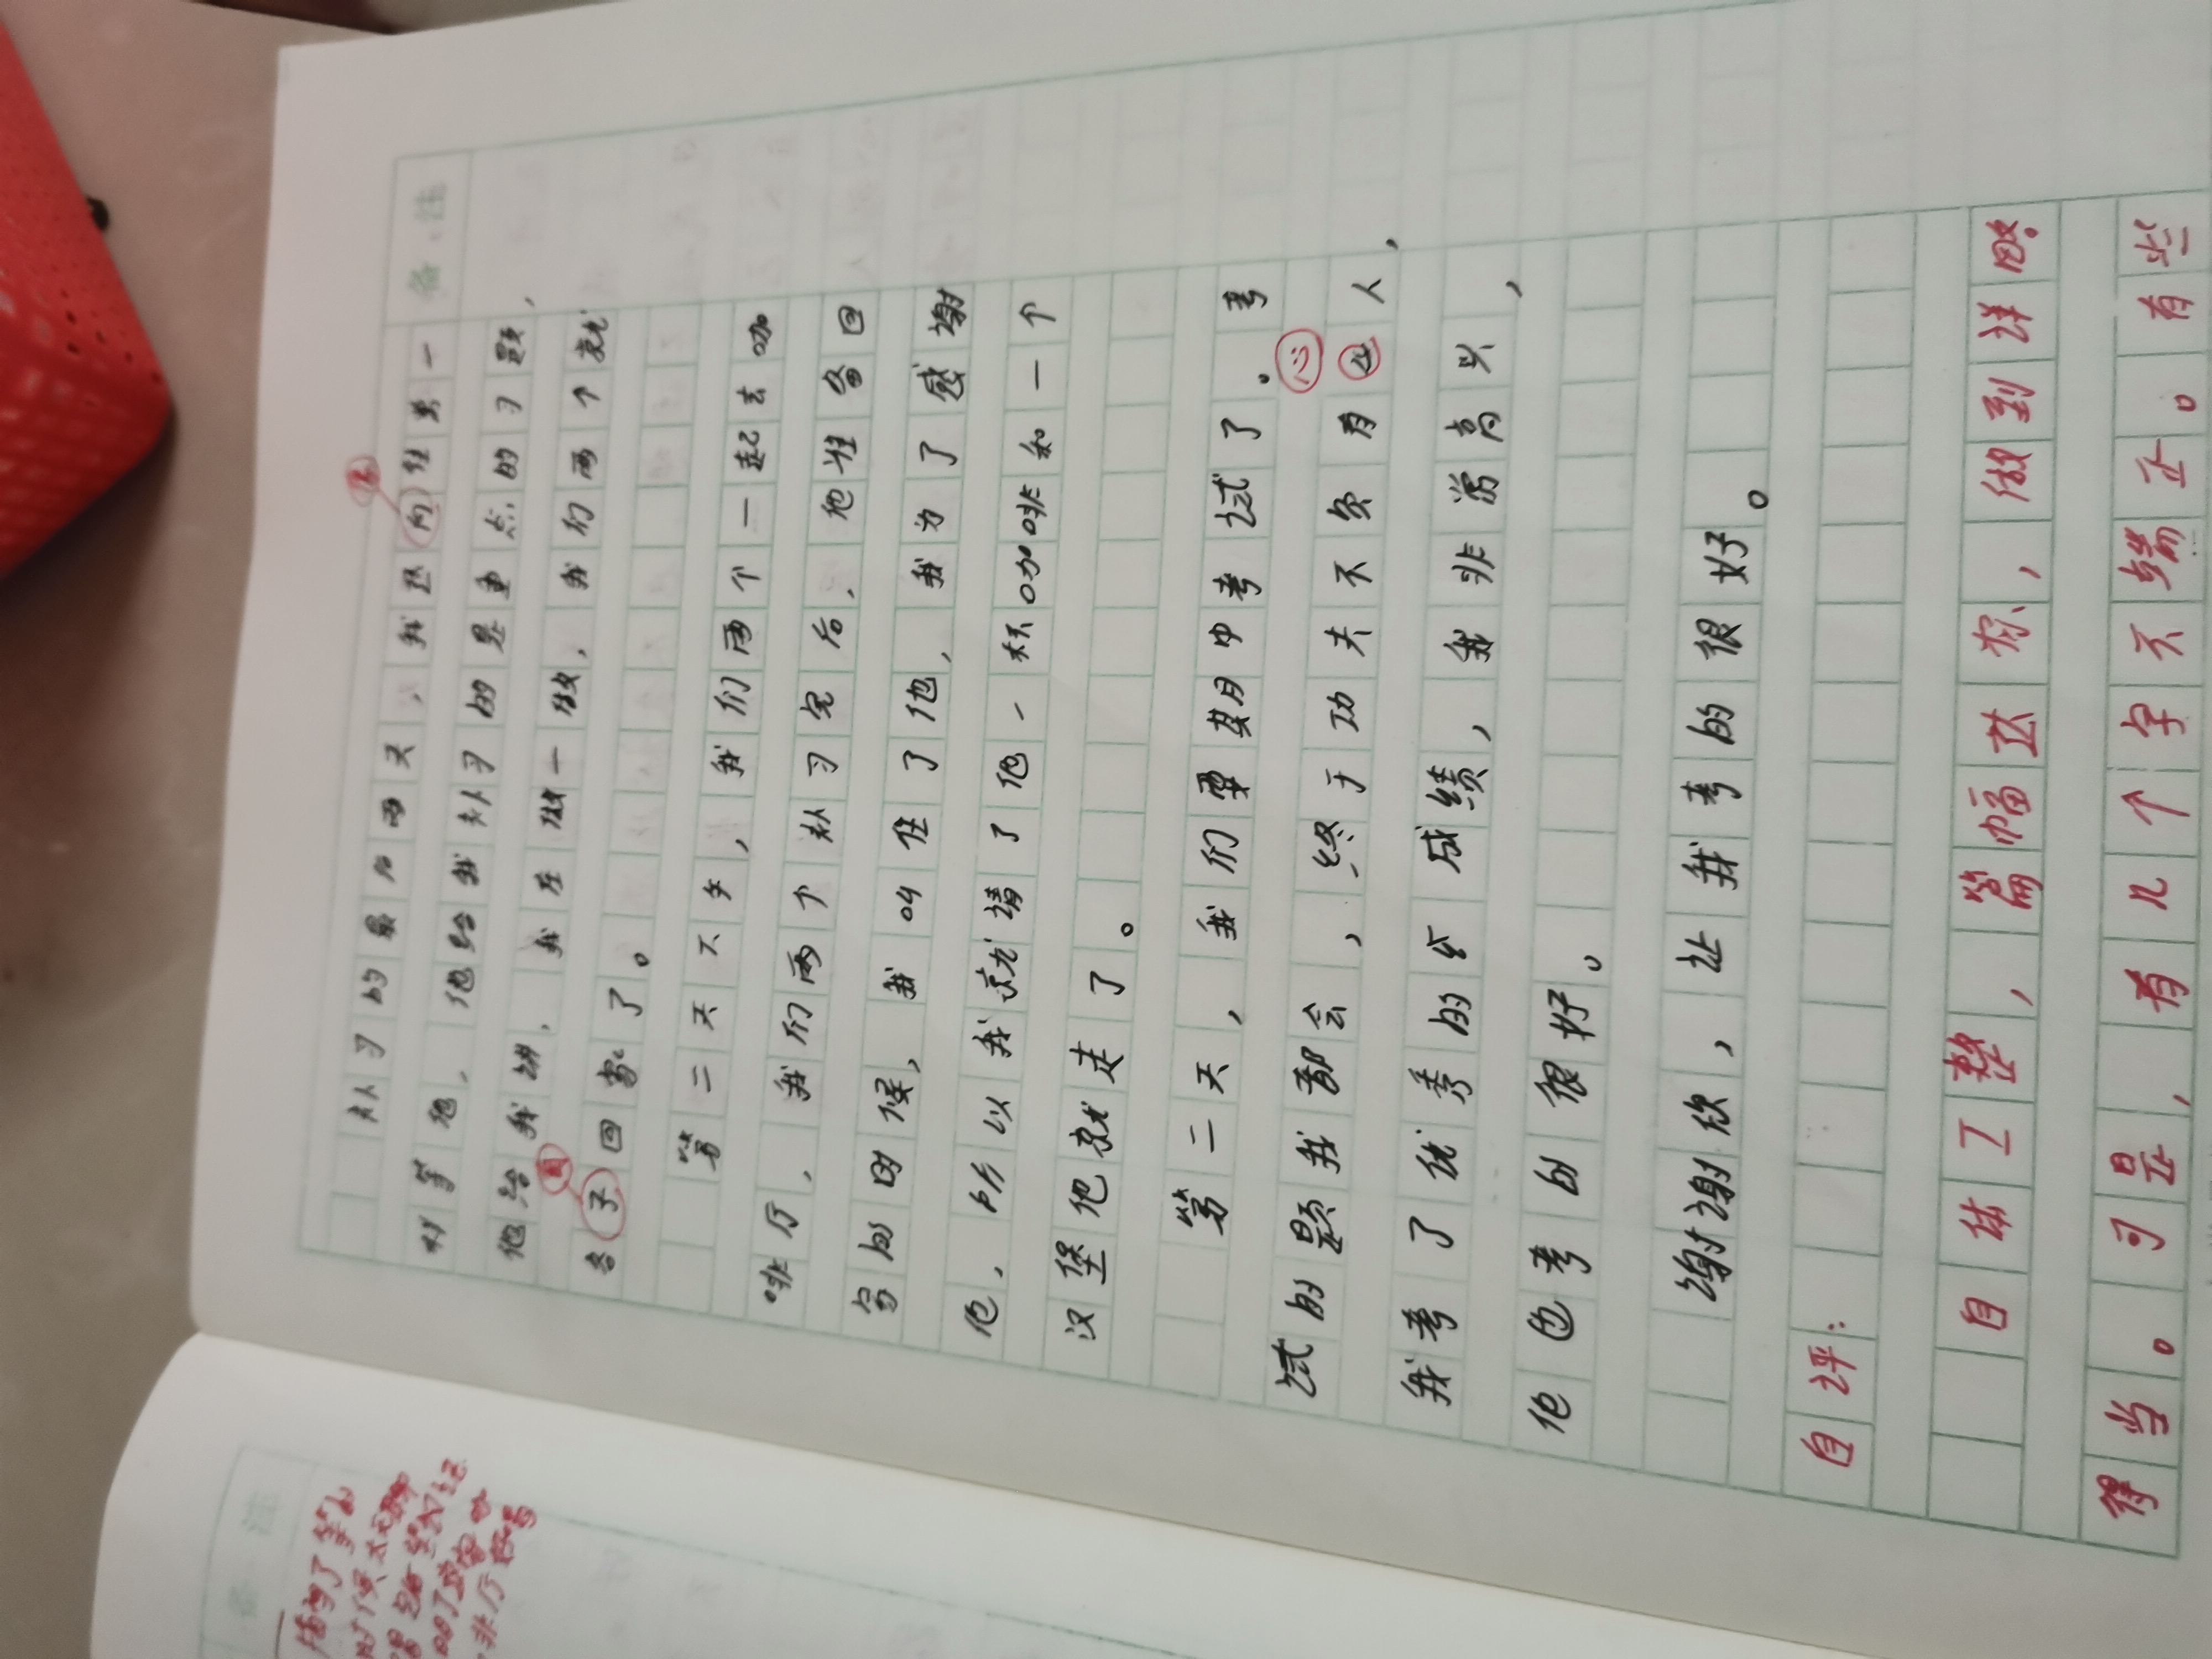 备注
补习的最后两天,我还向往常一
样等他,他给我补习的是重点的习题,
他给我讲,我在做一做,我们两个就
各子回家了。
第二天下午,我们两个一起去咖
啡厅,我们两个补习完后,他准备回
家的时候,我叫住了他,我为了感谢
他,所以我就请了他一杯咖啡和一个
汉堡他就走了。
第二天,我们要期中考试了。考
试的题我都会,终于功夫不负有心人,
我考了优秀的成绩,我非常高兴,
他也考的很好。
谢谢你,让我考的很好。
自评:
自体工整,篇幅达标,做到详略
得当。可是,有几个字不端正。有些
备注